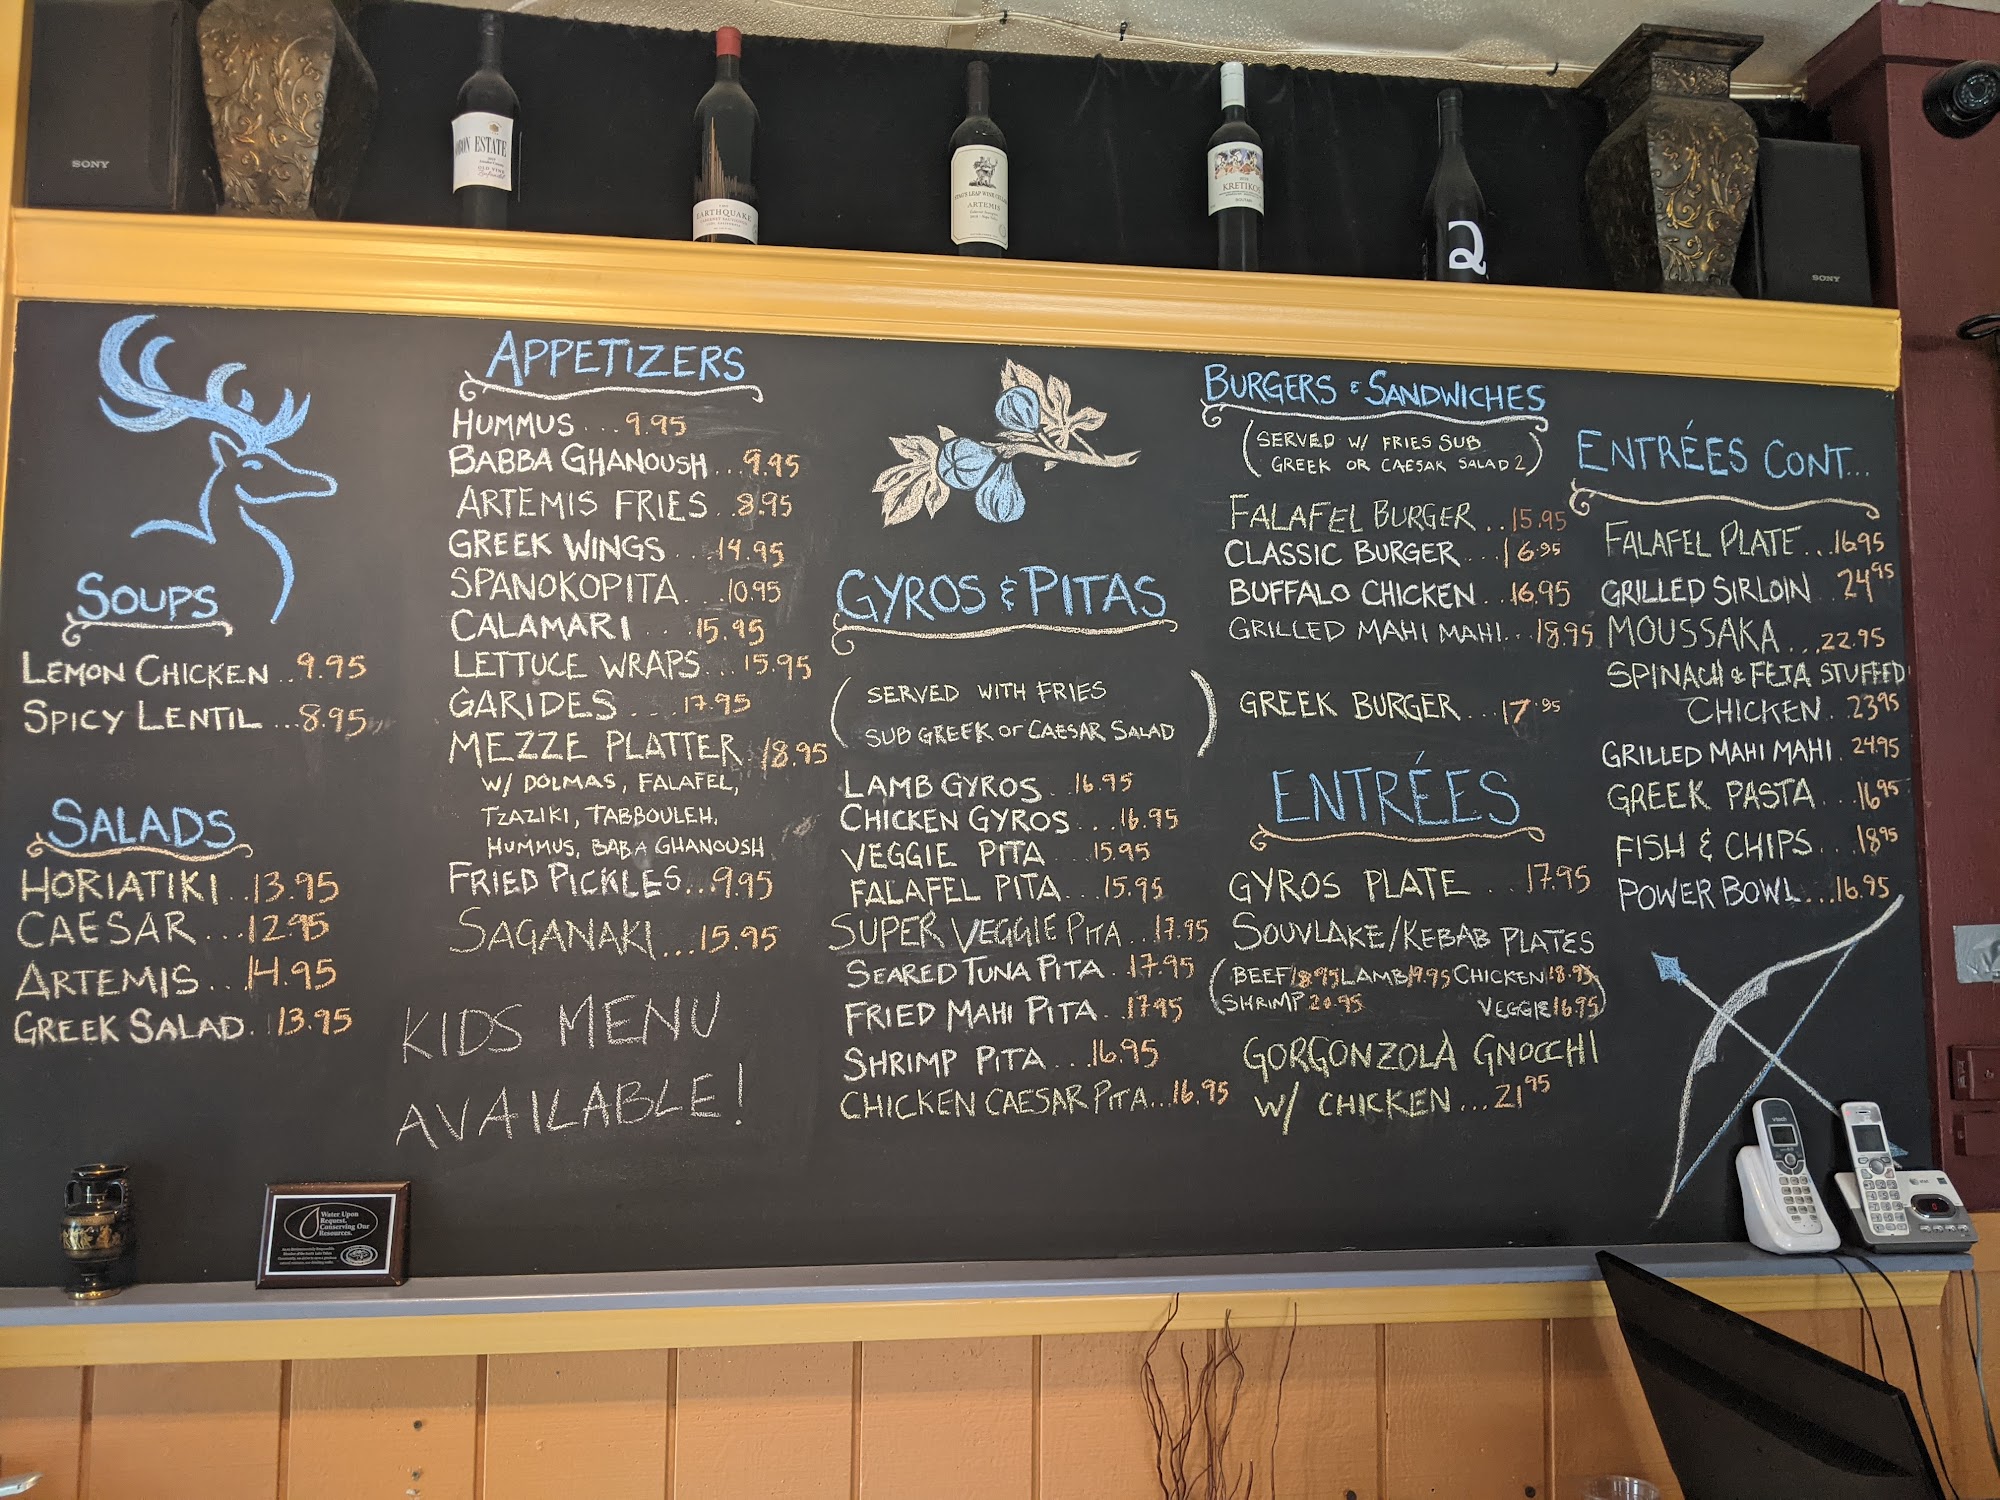 SONY
ESTATE
OLD VINE
Zinfandel
EARTHQUAKE
ARTEMIS
KRETIKOS
2
SONY
SOUPS
LEMON CHICKEN..9.95
SPICY LENTIL...8.95
SALADS
HORIATIKI..13.95
CAESAR...12.95
ARTEMIS...14.95
GREEK SALAD..13.95
APPETIZERS
HUMMUS...9.95
BABBA GHANOUSH...9.95
ARTEMIS FRIES..8.95
GREEK WINGS...14.95
SPANOKOPITA...10.95
CALAMARI...15.95
LETTUCE WRAPS...15.95
GARIDES....17.95
MEZZE PLATTER 18.95
W/ DOLMAS, FALAFEL,
TZAZIKI, TABBOULEH,
HUMMUS, BABA GHANOUSH
FRIED PICKLES...9.95
SAGANAKI...15.95
KIDS MENU
AVAILABLE!
GYROS & PITAS
(SERVED WITH FRIES
SUB GREEK or CAESAR SALAD)
LAMB GYROS..16.95
CHICKEN GYROS...16.95
VEGGIE PITA...15.95
FALAFEL PITA...15.95
SUPER VEGGIE PITA...17.95
SEARED TUNA PITA..17.95
FRIED MAHI PITA..17.95
SHRIMP PITA...16.95
CHICKEN CAESAR PITA...16.95
BURGERS & SANDWICHES
(SERVED W/ FRIES SUB
GREEK OR CAESAR SALAD 2)
FALAFEL BURGER...15.95
CLASSIC BURGER...16.95
BUFFALO CHICKEN..16.95
GRILLED MAHI MAHI...18.95
GREEK BURGER...17.95
ENTRÉES
GYROS PLATE...17.95
SOUVLAKE/KEBAB PLATES
(BEEF 18.95 LAMB 19.95 CHICKEN 18.95
SHRIMP 20.95 VEGGIE 16.95)
GORGONZOLA GNOCCHI
W/ CHICKEN...21.95
ENTRÉES CONT...
FALAFEL PLATE...16.95
GRILLED SIRLOIN..24.95
MOUSSAKA...22.95
SPINACH & FETA STUFFED
CHICKEN..23.95
GRILLED MAHI MAHI.24.95
GREEK PASTA...16.95
FISH & CHIPS...18.95
POWER BOWL...16.95
Water Upon
Request.
Conserving Our
Resources.
vtech
at&t